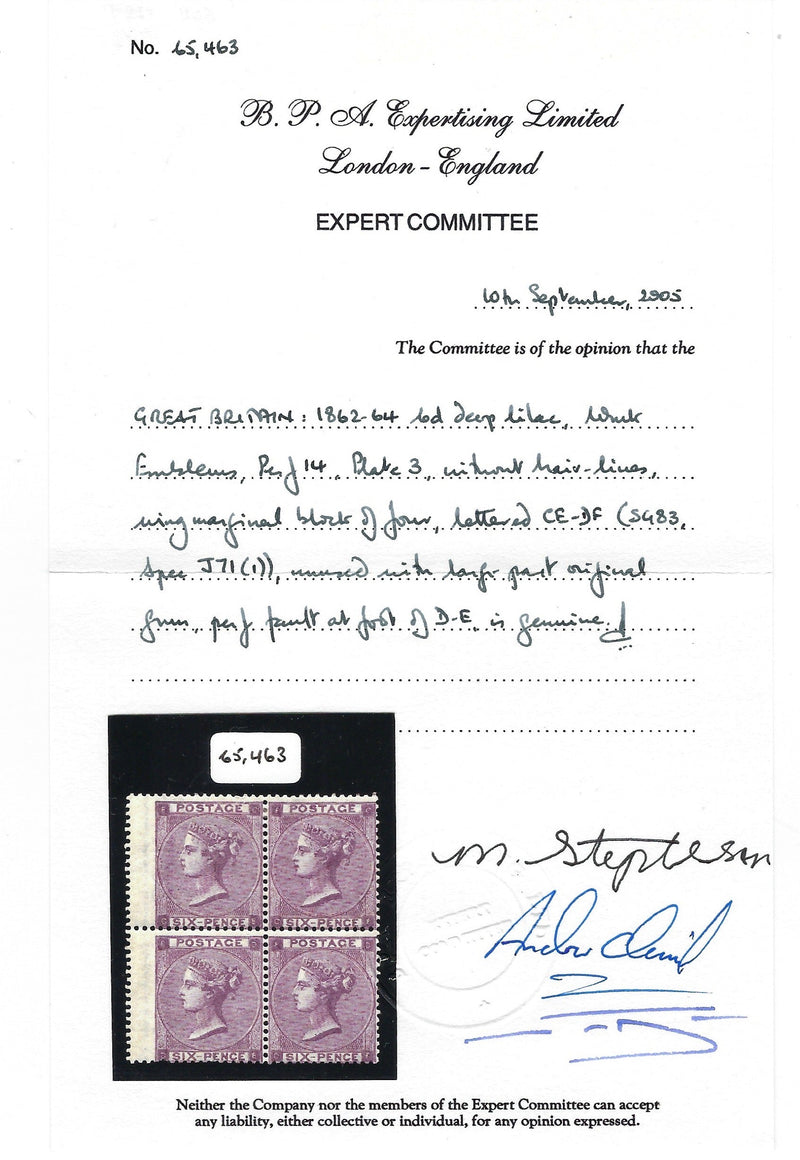 No. 65,463
B. P. A. Expertising Limited
London - England
EXPERT COMMITTEE
10th September, 2005
The Committee is of the opinion that the
GREAT BRITAIN: 1862-64 6d deep lilac, Wmk
Emblems, Perf 14, Plate 3, without hair-lines,
wing marginal block of four, lettered CE-DF (SG83,
Spec J71(1)), unused with large part original
gum, perf fault at foot of D-E, is genuine.
65,463
POSTAGE POSTAGE
SIX-PENCE SIX-PENCE
POSTAGE POSTAGE
SIX-PENCE SIX-PENCE
M.
Andrew
Neither the Company nor the members of the Expert Committee can accept
any liability, either collective or individual, for any opinion expressed.